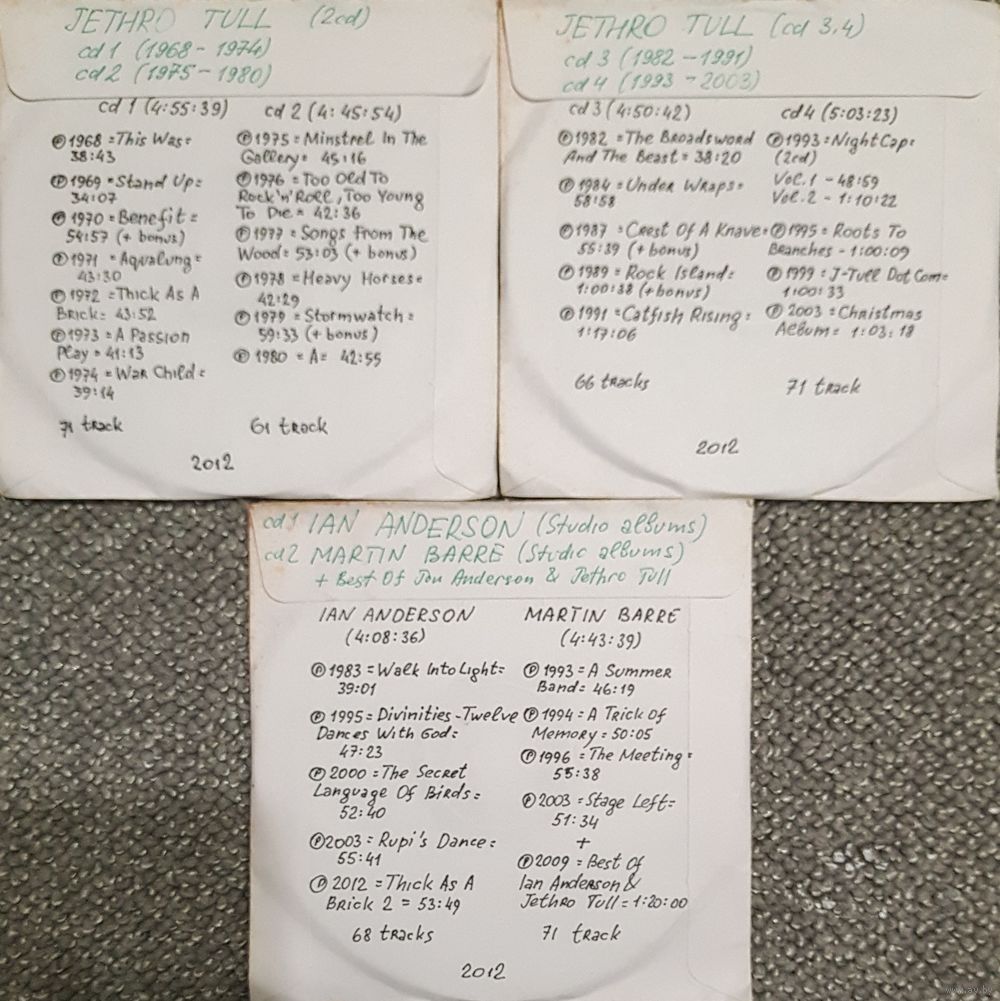 JETHRO TULL (2cd)
cd 1 (1968 - 1974)
cd 2 (1975 - 1980)
cd 1 (4:55:39)
Ⓟ 1968 =This Was=
38:43
Ⓟ 1969 =Stand Up=
34:07
Ⓟ 1970 =Benefit=
54:57 (+ bonus)
Ⓟ 1971 =Aqvalung=
43:30
Ⓟ 1972 =Thick As A
Brick= 43:52
Ⓟ 1973 =A Passion
Play = 41:13
Ⓟ 1974 =War Child=
39:14
71 track
cd 2 (4:45:54)
Ⓟ 1975 =Minstrel In The
Gallery= 45:16
Ⓟ 1976 =Too Old To
Rock'n'Roll, Too Young
To Die = 42:36
Ⓟ 1977 =Songs From The
Wood= 53:03 (+ bonus)
Ⓟ 1978 =Heavy Horses=
42:29
Ⓟ 1979 =Stormwatch=
59:33 (+ bonus)
Ⓟ 1980 =A= 42:55
61 track
2012
JETHRO TULL (cd 3,4)
cd 3 (1982 - 1991)
cd 4 (1993 - 2003)
cd 3 (4:50:42)
Ⓟ 1982 =The Broadsword
And The Beast= 38:20
Ⓟ 1984 =Under Wraps=
58:58
Ⓟ 1987 =Crest Of A Knave=
55:39 (+ bonus)
Ⓟ 1989 =Rock Island=
1:00:38 (+ bonus)
Ⓟ 1991 =Catfish Rising=
1:17:06
66 tracks
cd 4 (5:03:23)
Ⓟ 1993 =Night Cap=
(2cd)
Vol.1 - 48:59
Vol.2 - 1:10:22
Ⓟ 1995 =Roots To
Branches - 1:00:09
Ⓟ 1999 =J-Tull Dot Com=
1:00:33
Ⓟ 2003 =Christmas
Album= 1:03:18
71 track
2012
cd 1 IAN ANDERSON (Studio albums)
cd 2 MARTIN BARRE (Studio albums)
+ Best Of Jan Anderson & Jethro Tull
IAN ANDERSON
(4:08:36)
Ⓟ 1983 =Walk Into Light=
39:01
Ⓟ 1995 =Divinities -Twelve
Dances With God=
47:23
Ⓟ 2000 =The Secret
Language Of Birds=
52:40
Ⓟ 2003 =Rupi's Dance=
55:41
Ⓟ 2012 =Thick As A
Brick 2 = 53:49
68 tracks
MARTIN BARRE
(4:43:39)
Ⓟ 1993 =A Summer
Band= 46:19
Ⓟ 1994 =A Trick Of
Memory= 50:05
Ⓟ 1996 =The Meeting=
55:38
Ⓟ 2003 =Stage Left=
51:34
+
Ⓟ 2009 =Best Of
Ian Anderson &
Jethro Tull= 1:20:00
71 track
2012
www.ay.by